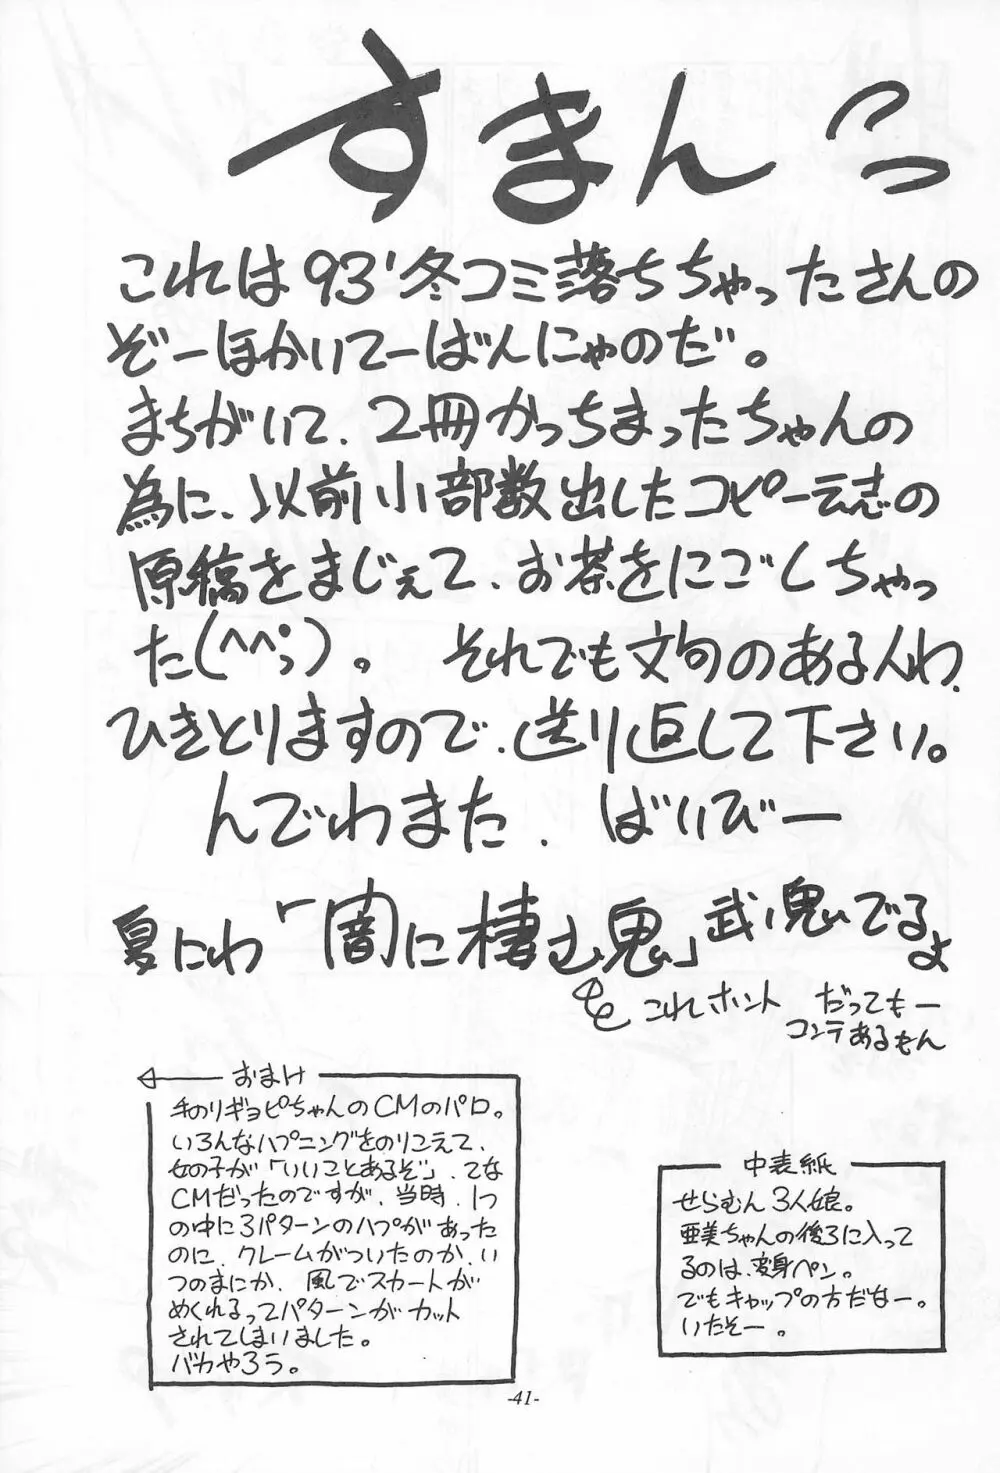 すまんっ
これは93'冬コミ落ちちゃったさんの
ぞーほかいてーばんにゃのだ。
まちがいて、2冊かっちまったちゃんの
為に、以前小部数出したコピー誌の
原稿をまじぇて、お茶をにごしちゃっ
た(^^;)。 それでも文句のある人わ、
ひきとりますので、送り返して下さい。
んでわまた、ばいびー
夏にわ「闇に棲む鬼」武鬼でるよ
これホント だってもー
コンテあるもん
おまけ
手のりギョピちゃんのCMのパロ。
いろんなハプニングをのりこえて、
女の子が「いいことあるぞ」、てな
CMだったのですが、当時、1つ
の中に3パターンのハプがあった
のに、クレームがついたのか、い
つのまにか、風でスカートが
めくれるってパターンがカット
されてしまいました。
バカやろう。
中表紙
せらむん3人娘。
亜美ちゃんの後ろに入って
るのは、変身ペン。
でもキャップの方だなー。
いたそー。
-41-